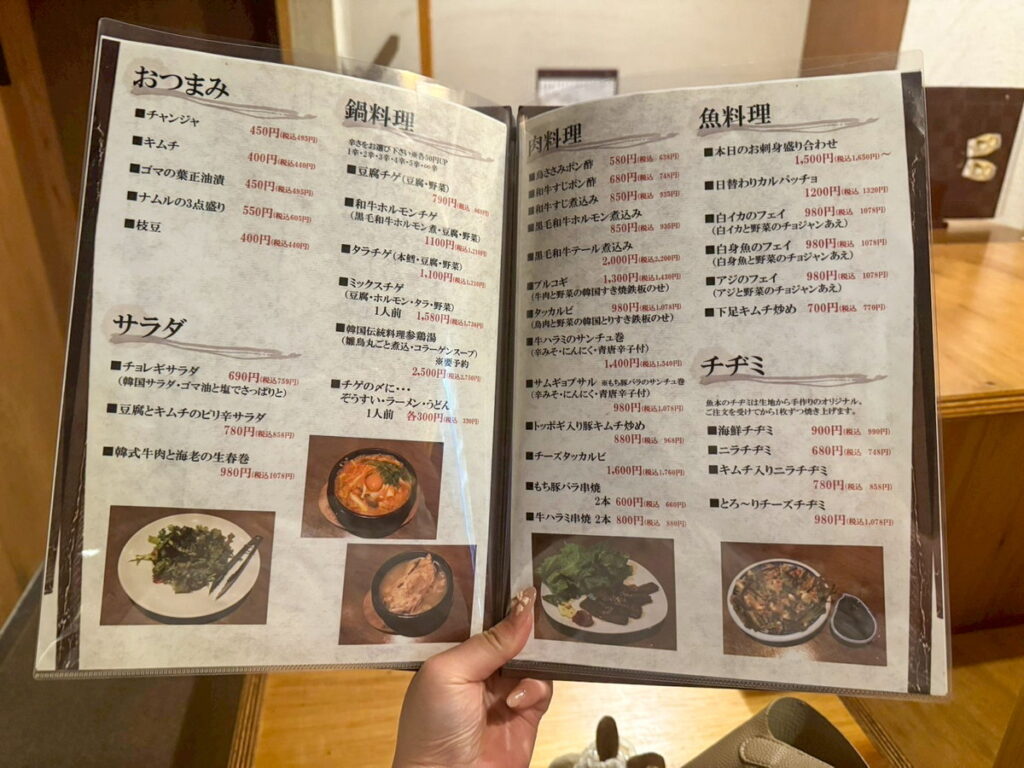 おつまみ
■チャンジャ
450円(税込495円)
■キムチ
400円(税込440円)
■ゴマの葉正油漬
450円(税込495円)
■ナムルの3点盛り
550円(税込605円)
■枝豆
400円(税込440円)
サラダ
■チョレギサラダ
690円(税込759円)
(韓国サラダ・ゴマ油と塩でさっぱりと)
■豆腐とキムチのピリ辛サラダ
780円(税込858円)
■韓式牛肉と海老の生春巻
980円(税込1078円)
鍋料理
辛さをお選び下さい※各50円UP
1辛・2辛・3辛・4辛・5辛・∞辛
■豆腐チゲ(豆腐・野菜)
790円(税込 869円)
■和牛ホルモンチゲ
(黒毛和牛ホルモン煮・豆腐・野菜)
1100円(税込1,210円)
■タラチゲ(本鱈・豆腐・野菜)
1,100円(税込1,210円)
■ミックスチゲ
(豆腐・ホルモン・タラ・野菜)
1人前 1,580円(税込1,738円)
■韓国伝統料理参鶏湯
(雛鳥丸ごと煮込・コラーゲンスープ)
※要予約
2,500円(税込2,750円)
■チゲの〆に・・・
ぞうすい・ラーメン・うどん
1人前 各300円(税込 330円)
肉料理
■鳥ささみポン酢 580円(税込 638円)
■和牛すじポン酢 680円(税込 748円)
■和牛すじ煮込み 850円(税込 935円)
■黒毛和牛ホルモン煮込み
850円(税込 935円)
■黒毛和牛テール煮込み
2,000円(税込2,200円)
■プルコギ 1,300円(税込1,430円)
(牛肉と野菜の韓国すき焼鉄板のせ)
■タッカルビ 980円(税込1,078円)
(鳥肉と野菜の韓国とりすき焼鉄板のせ)
■牛ハラミのサンチュ巻
(辛みそ・にんにく・青唐辛子付)
1,400円(税込1,540円)
■サムギョプサル ※もち豚バラのサンチュ巻
(辛みそ・にんにく・青唐辛子付)
980円(税込1,078円)
■トッポギ入り豚キムチ炒め
880円(税込 968円)
■チーズタッカルビ
1,600円(税込1,760円)
■もち豚バラ串焼
2本 600円(税込 660円)
■牛ハラミ串焼 2本 800円(税込 880円)
魚料理
■本日のお刺身盛り合わせ
1,500円(税込1,650円)〜
■日替わりカルパッチョ
1200円(税込 1320円)
■白イカのフェイ 980円(税込 1078円)
(白イカと野菜のチョジャンあえ)
■白身魚のフェイ 980円(税込 1078円)
(白身魚と野菜のチョジャンあえ)
■アジのフェイ 980円(税込 1078円)
(アジと野菜のチョジャンあえ)
■下足キムチ炒め 700円(税込 770円)
チヂミ
魚本のチヂミは生地から手作りのオリジナル。
ご注文を受けてから1枚ずつ焼き上げます。
■海鮮チヂミ 900円(税込 990円)
■ニラチヂミ 680円(税込 748円)
■キムチ入りニラチヂミ
780円(税込 858円)
■とろ〜りチーズチヂミ
980円(税込1,078円)